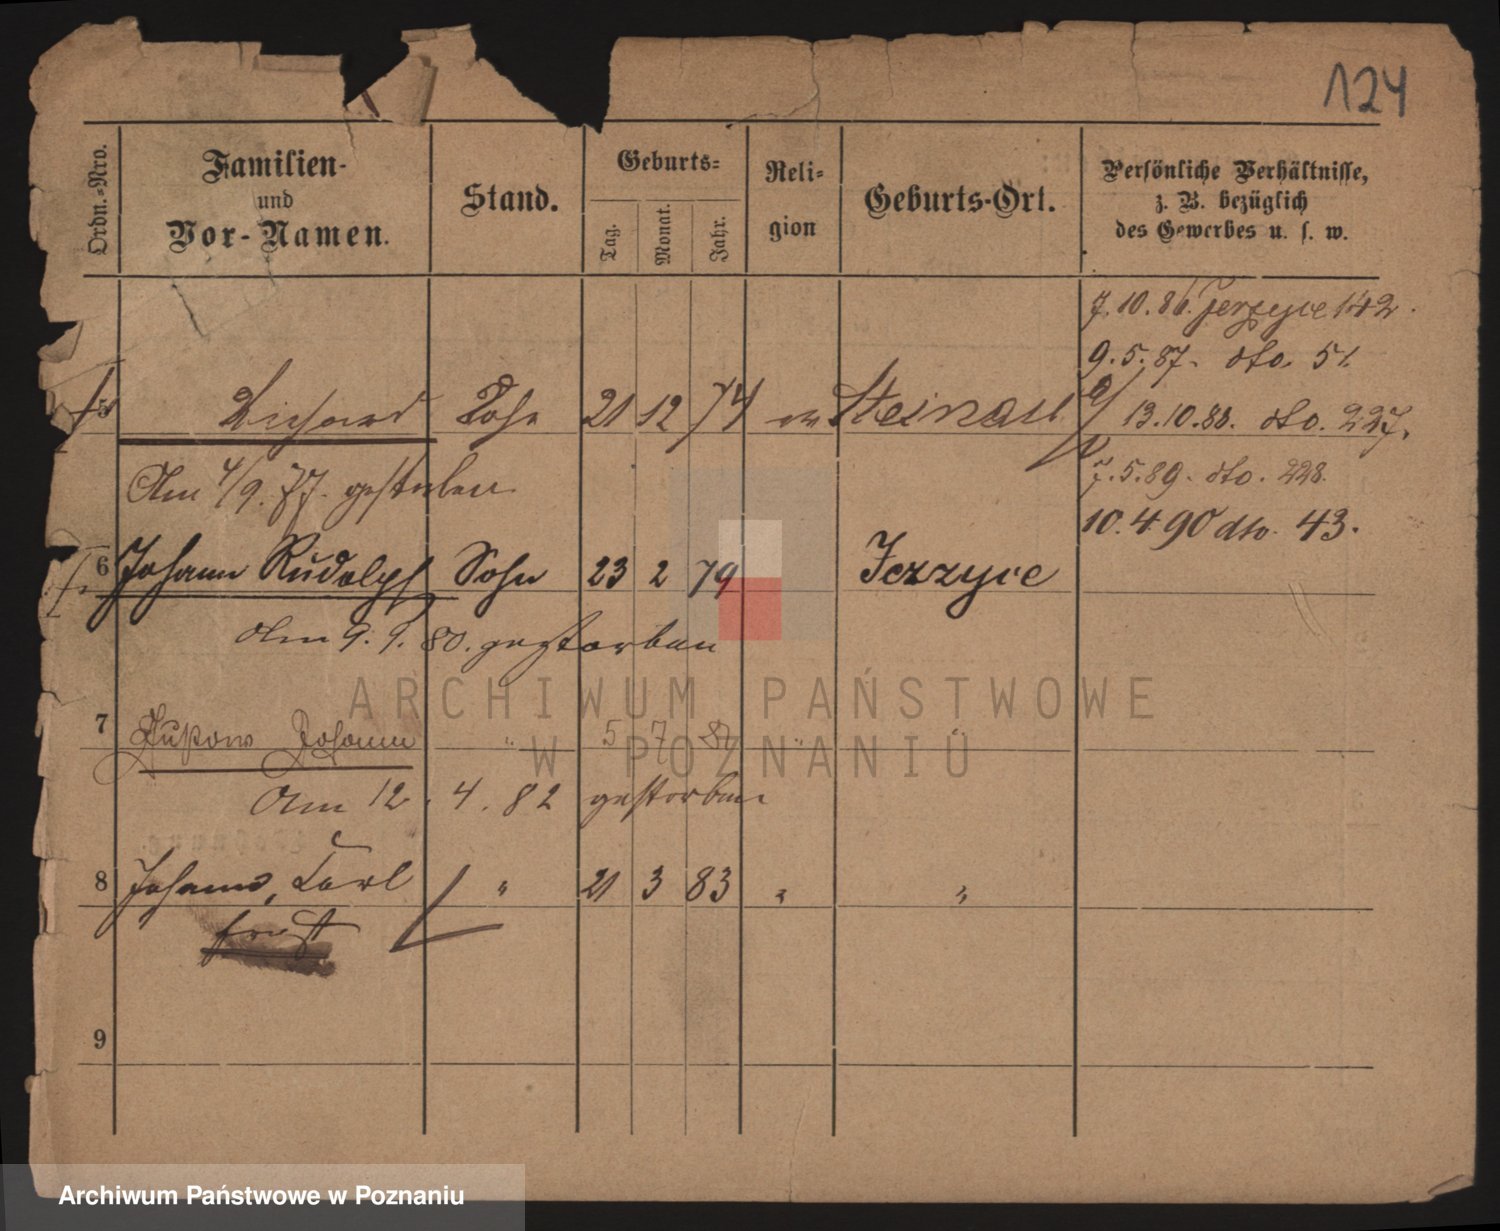 124
Ordn.-Nro.
Familien-
und
Vor-Namen.
Stand.
Geburts-
Tag.
Monat.
Jahr.
Reli-
gion
Geburts-Ort.
Persönliche Verhältnisse,
z. B. bezüglich
des Gewerbes u. s. w.
7.10.86. Jerzyce 142.
9.5.87. dto. 51.
5 Richard Sohn 21 12 74 Steinau
13.10.88. dto. 227.
Am 4/9. 77. gestorben
7.5.89. dto. 228.
10.4.90 dto. 43.
6 Johann Rudolph Sohn 23 2 79 Jezzyce
Am 9. 9. 80. gestorben
7 Johann " 5 7 "
Am 12. 4. 82 gestorben
8 Johann, Carl " 21 3 83 " "
Ernst
9
ARCHIWUM PAŃSTWOWE
W POZNANIU
Archiwum Państwowe w Poznaniu